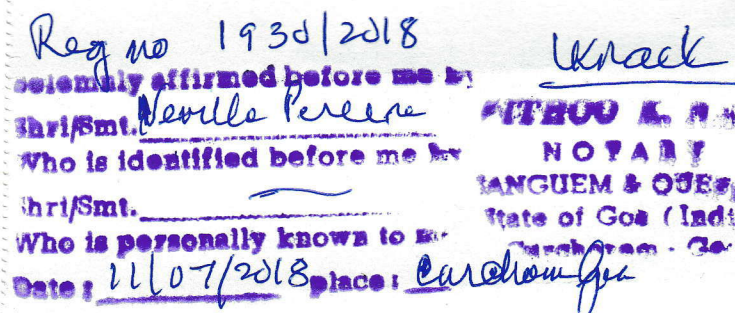 Reg no 1930/2018
Solemnly affirmed before me by
Shri/Smt. Neville Pereira
Who is identified before me by
Shri/Smt.
Who is personally known to me
Date : 11/07/2018 place : Curchorem Goa
NOTARY
SANGUEM & QUEPEM
State of Goa (Indi
Curchorem - Goa